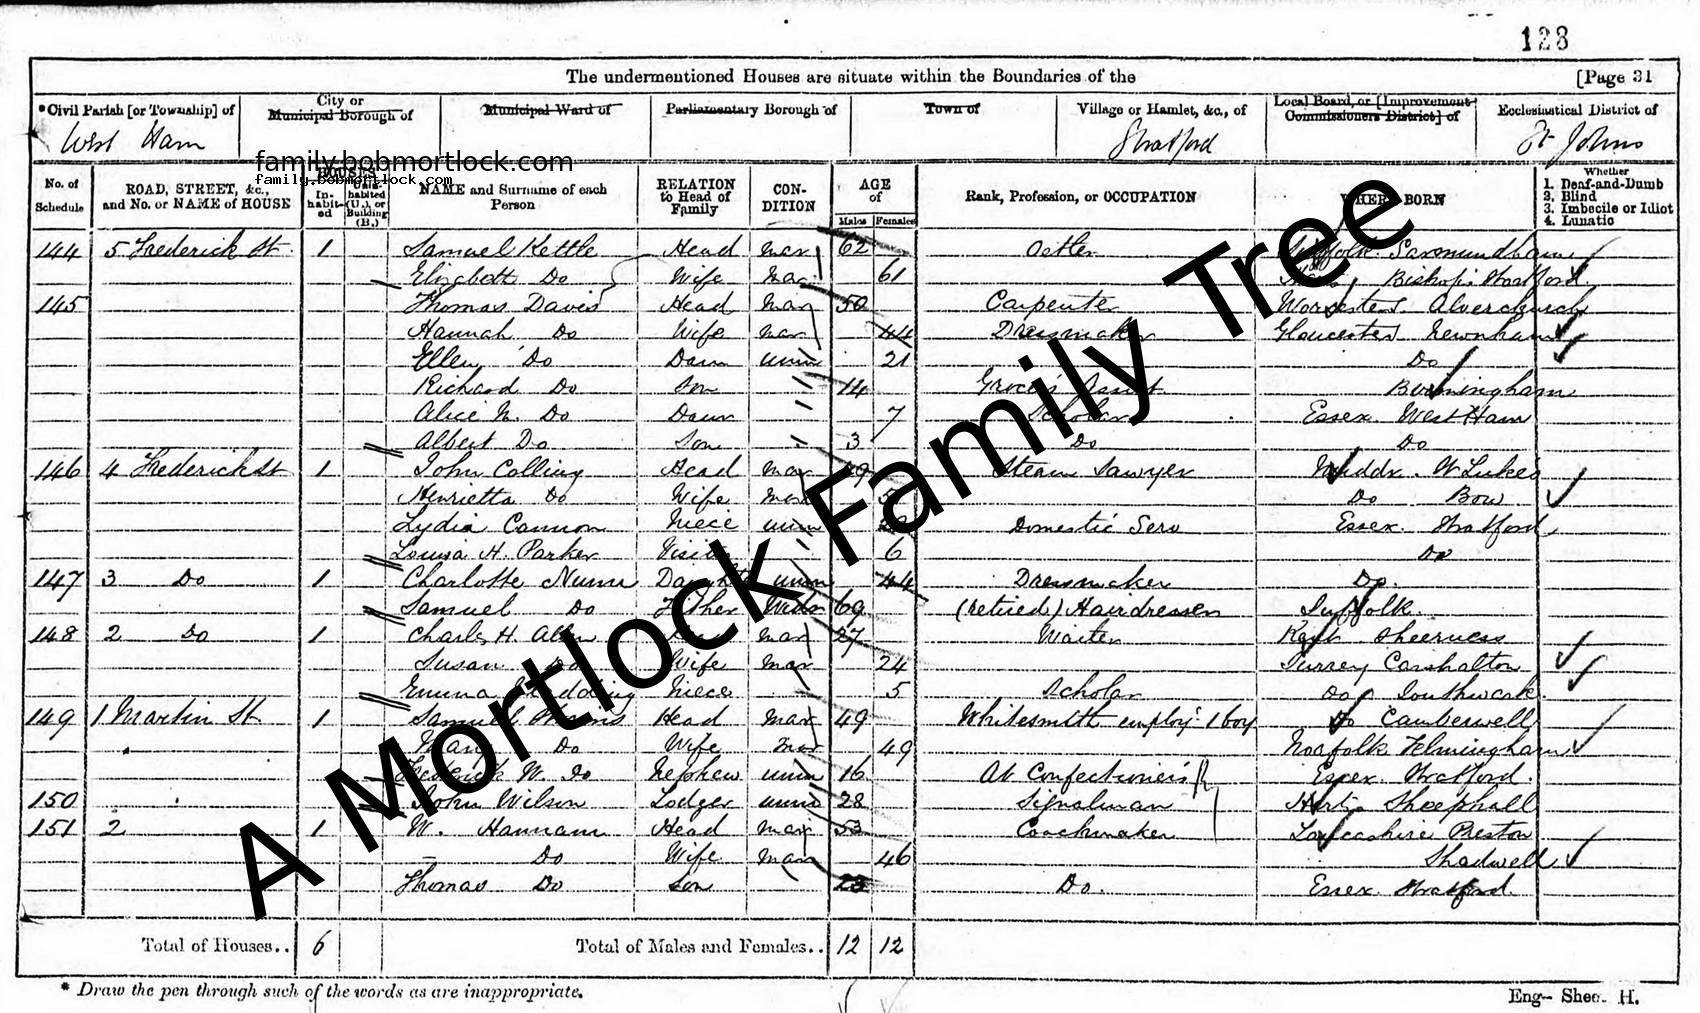 128
The undermentioned Houses are situate within the Boundaries of the [Page 31
*Civil Parish [or Township] of City or Municipal Borough of Municipal Ward of Parliamentary Borough of Town of Village or Hamlet, &c., of Local Board, or [Improvement Commissioners District] of Ecclesiastical District of
West Ham Stratford St Johns
family.bobmortlock.com
family.bobmortlock.com
No. of Schedule ROAD, STREET, &c., and No. or NAME of HOUSE HOUSES In-habit-ed Unin-habited (U.), or Building (B.) NAME and Surname of each Person RELATION to Head of Family CON-DITION AGE of Males Females Rank, Profession, or OCCUPATION WHERE BORN Whether 1. Deaf-and-Dumb 2. Blind 3. Imbecile or Idiot 4. Lunatic
144 5 Frederick St 1 Samuel Kettle Head Mar 62 Ostler Suffolk Saxmundham
Elizabeth Do Wife Mar 61 Bishops Stortford
145 Thomas Davis Head Mar 50 Carpenter Worcester Alvechurch
Hannah Do Wife Mar 44 Dressmaker Gloucester Newnham
Ellen Do Daur Unm 21 Do
Richard Do Son " 14 Grocer's Assist Birmingham
Alice Do Daur " 7 Scholar Essex West Ham
Albert Do Son " 3 Do Do
146 4 Frederick St 1 John Colling Head Mar 49 Steam Sawyer Middx St Lukes
Henrietta Do Wife Mar Do Bow
Lydia Cannon Niece Unm Domestic Serv Essex Stratford
Louisa H. Parker Visitor " 6 Do
147 3 Do 1 Charlotte Nunn Daughter Unm 44 Dressmaker Do
Samuel Do Father Widr 69 (retired) Hairdresser Suffolk
148 2 Do 1 Charles H. Allen Head Mar 27 Waiter Kent Sheerness
Susan Do Wife Mar 24 Surrey Carshalton
Emma Niece 5 Scholar Do Southwark
149 1 Martin St 1 Samuel Head Mar 49 Whitesmith employg 1 boy Do Camberwell
Mary Do Wife Mar 49 Norfolk Felmingham
Frederick W. Do Nephew Unm 16 At Confectioner's Essex Stratford
150 John Wilson Lodger Unm 28 Signalman Herts Sheephall
151 2 1 W. Hannam Head Mar 53 Coachmaker Lancashire Preston
— Do Wife Mar 46 Shadwell
Thomas Do Son 23 Do. Essex Stratford
Total of Houses.. 6 Total of Males and Females.. 12 12
* Draw the pen through such of the words as are inappropriate.
Eng— Sheet H.
A Mortlock Family Tree